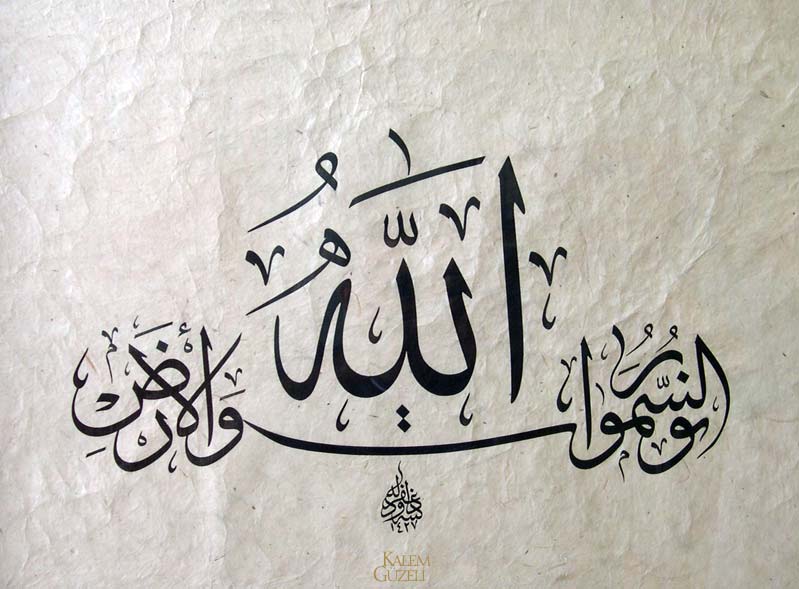 اللَّهُ نُورُ السَّمٰوَاتِ وَالْأَرْضِ
١٤٢٧
KALEM
GÜZELİ